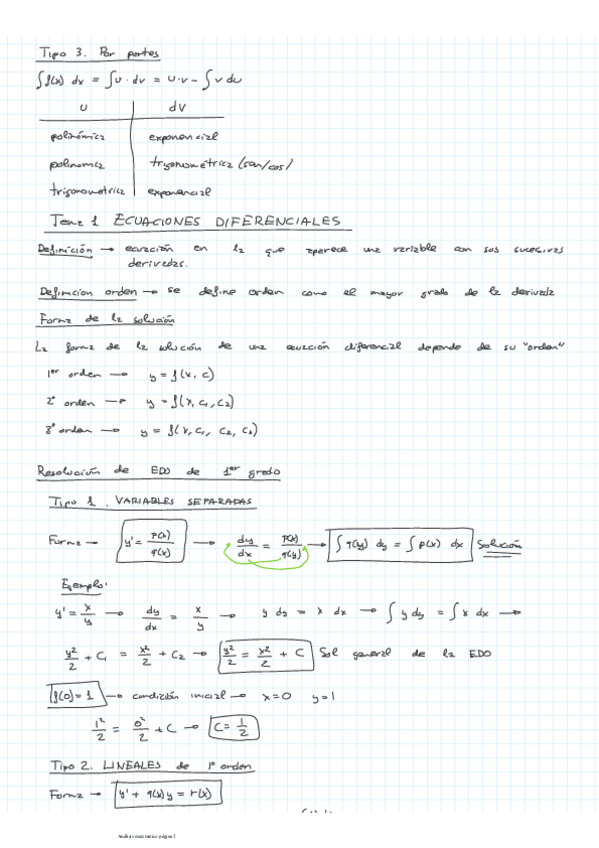 Tipo 3. Por partes
∫ f(x) dx = ∫ u · dv = u·v - ∫ v du
u | dv
polinómica | exponencial
polinomica | trigonométrica (sen/cos)
trigonometrica | exponencial
Tema 1 ECUACIONES DIFERENCIALES
Definición → ecuación en la que aparece una variable con sus sucesivas
derivadas.
Definicion orden → se define orden como el mayor grado de la derivada
Forma de la solución
La forma de la solución de una ecuación diferencial depende de su "orden"
1er orden → y = f(x, c)
2º orden → y = f(x, c₁, c₂)
3º orden → y = f(x, c₁, c₂, c₃)
Resolución de EDO de 1er grado
Tipo 1. VARIABLES SEPARADAS
Forma → y' = p(x)/q(x) → dy/dx = p(x)/q(y) → ∫ q(y) dy = ∫ p(x) dx Solución
Ejemplo:
y' = x/y → dy/dx = x/y → y dy = x dx → ∫ y dy = ∫ x dx →
y²/2 + C₁ = x²/2 + C₂ → y²/2 = x²/2 + C Sol general de la EDO
f(0) = 1 → condición inicial → x=0 y=1
1²/2 = 0²/2 + C → C = 1/2
Tipo 2. LINEALES de 1º orden
Forma → y' + q(x) y = r(x)